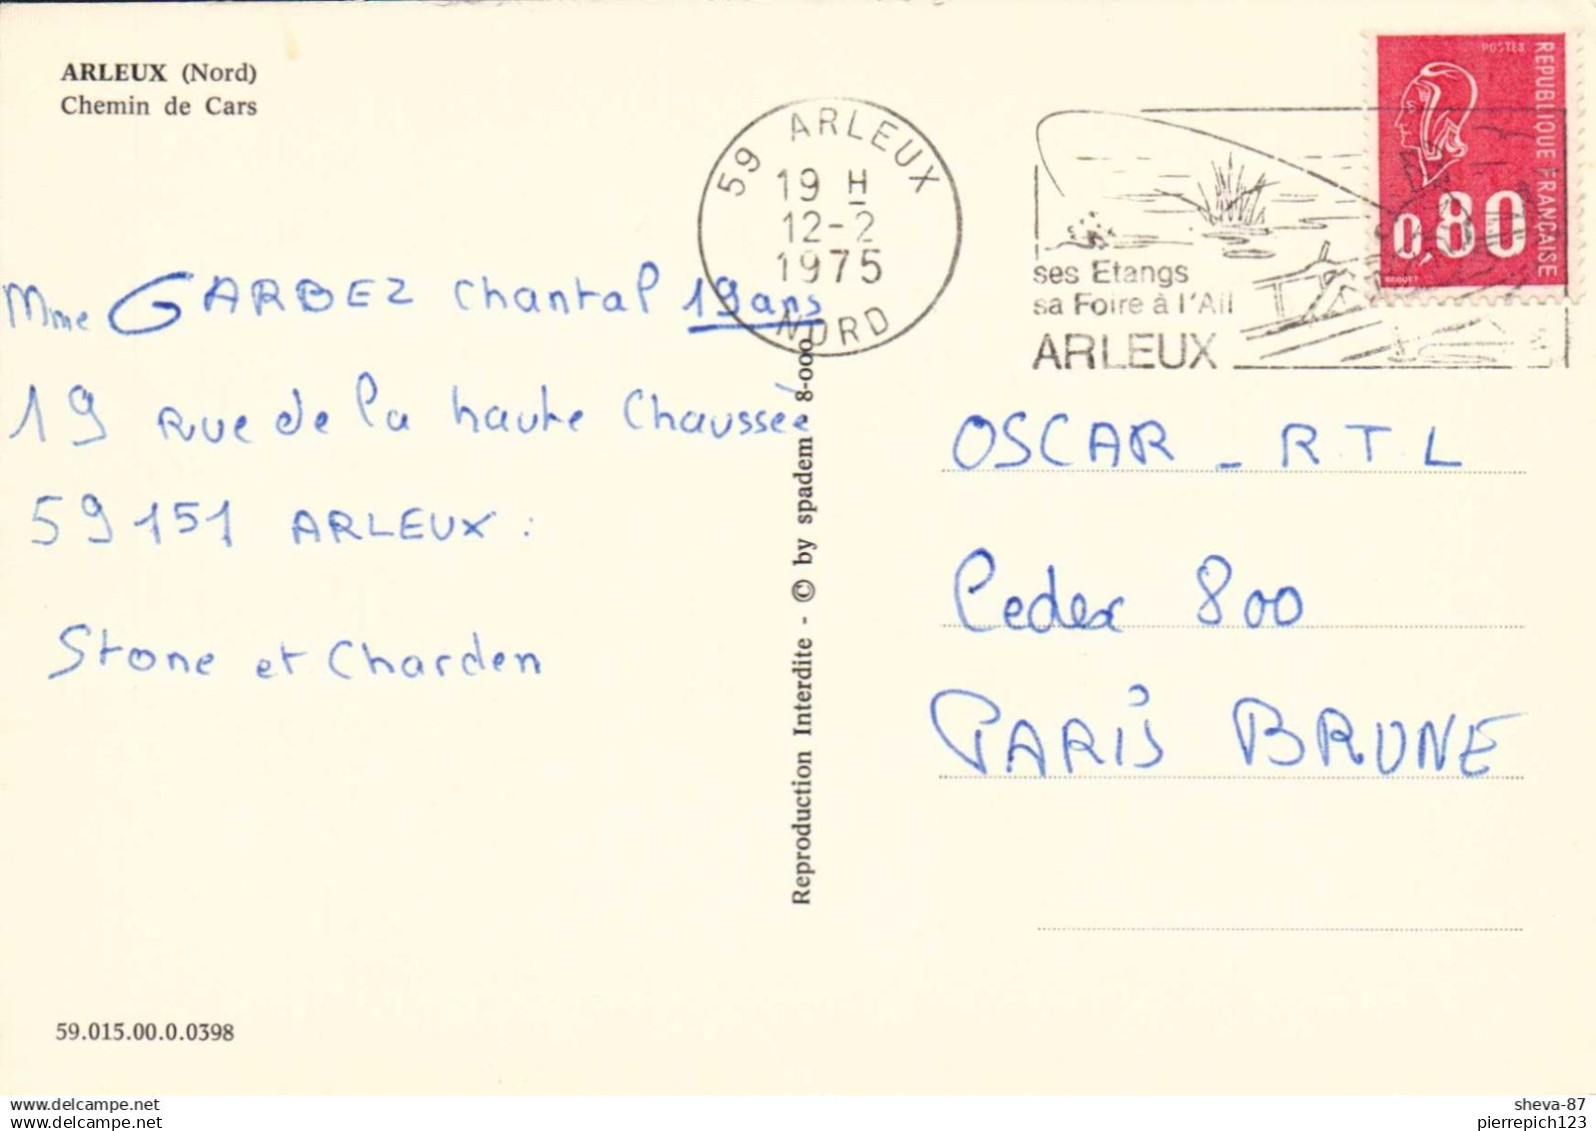 ARLEUX (Nord)
Chemin de Cars
59 ARLEUX
19 H
12-2
1975
NORD
ses Etangs
sa Foire à l'Ail
ARLEUX
POSTES
REPUBLIQUE FRANÇAISE
0,80
BEQUET
Mme GARBEZ Chantal 19 ans
19 rue de la haute Chaussée
59151 ARLEUX :
Stone et Charden
Reproduction Interdite - © by spadem - 8-000
OSCAR - R.T.L
Cedex 800
PARIS BRUNE
59.015.00.0.0398
www.delcampe.net
www.delcampe.net
sheva-87
pierrepich123